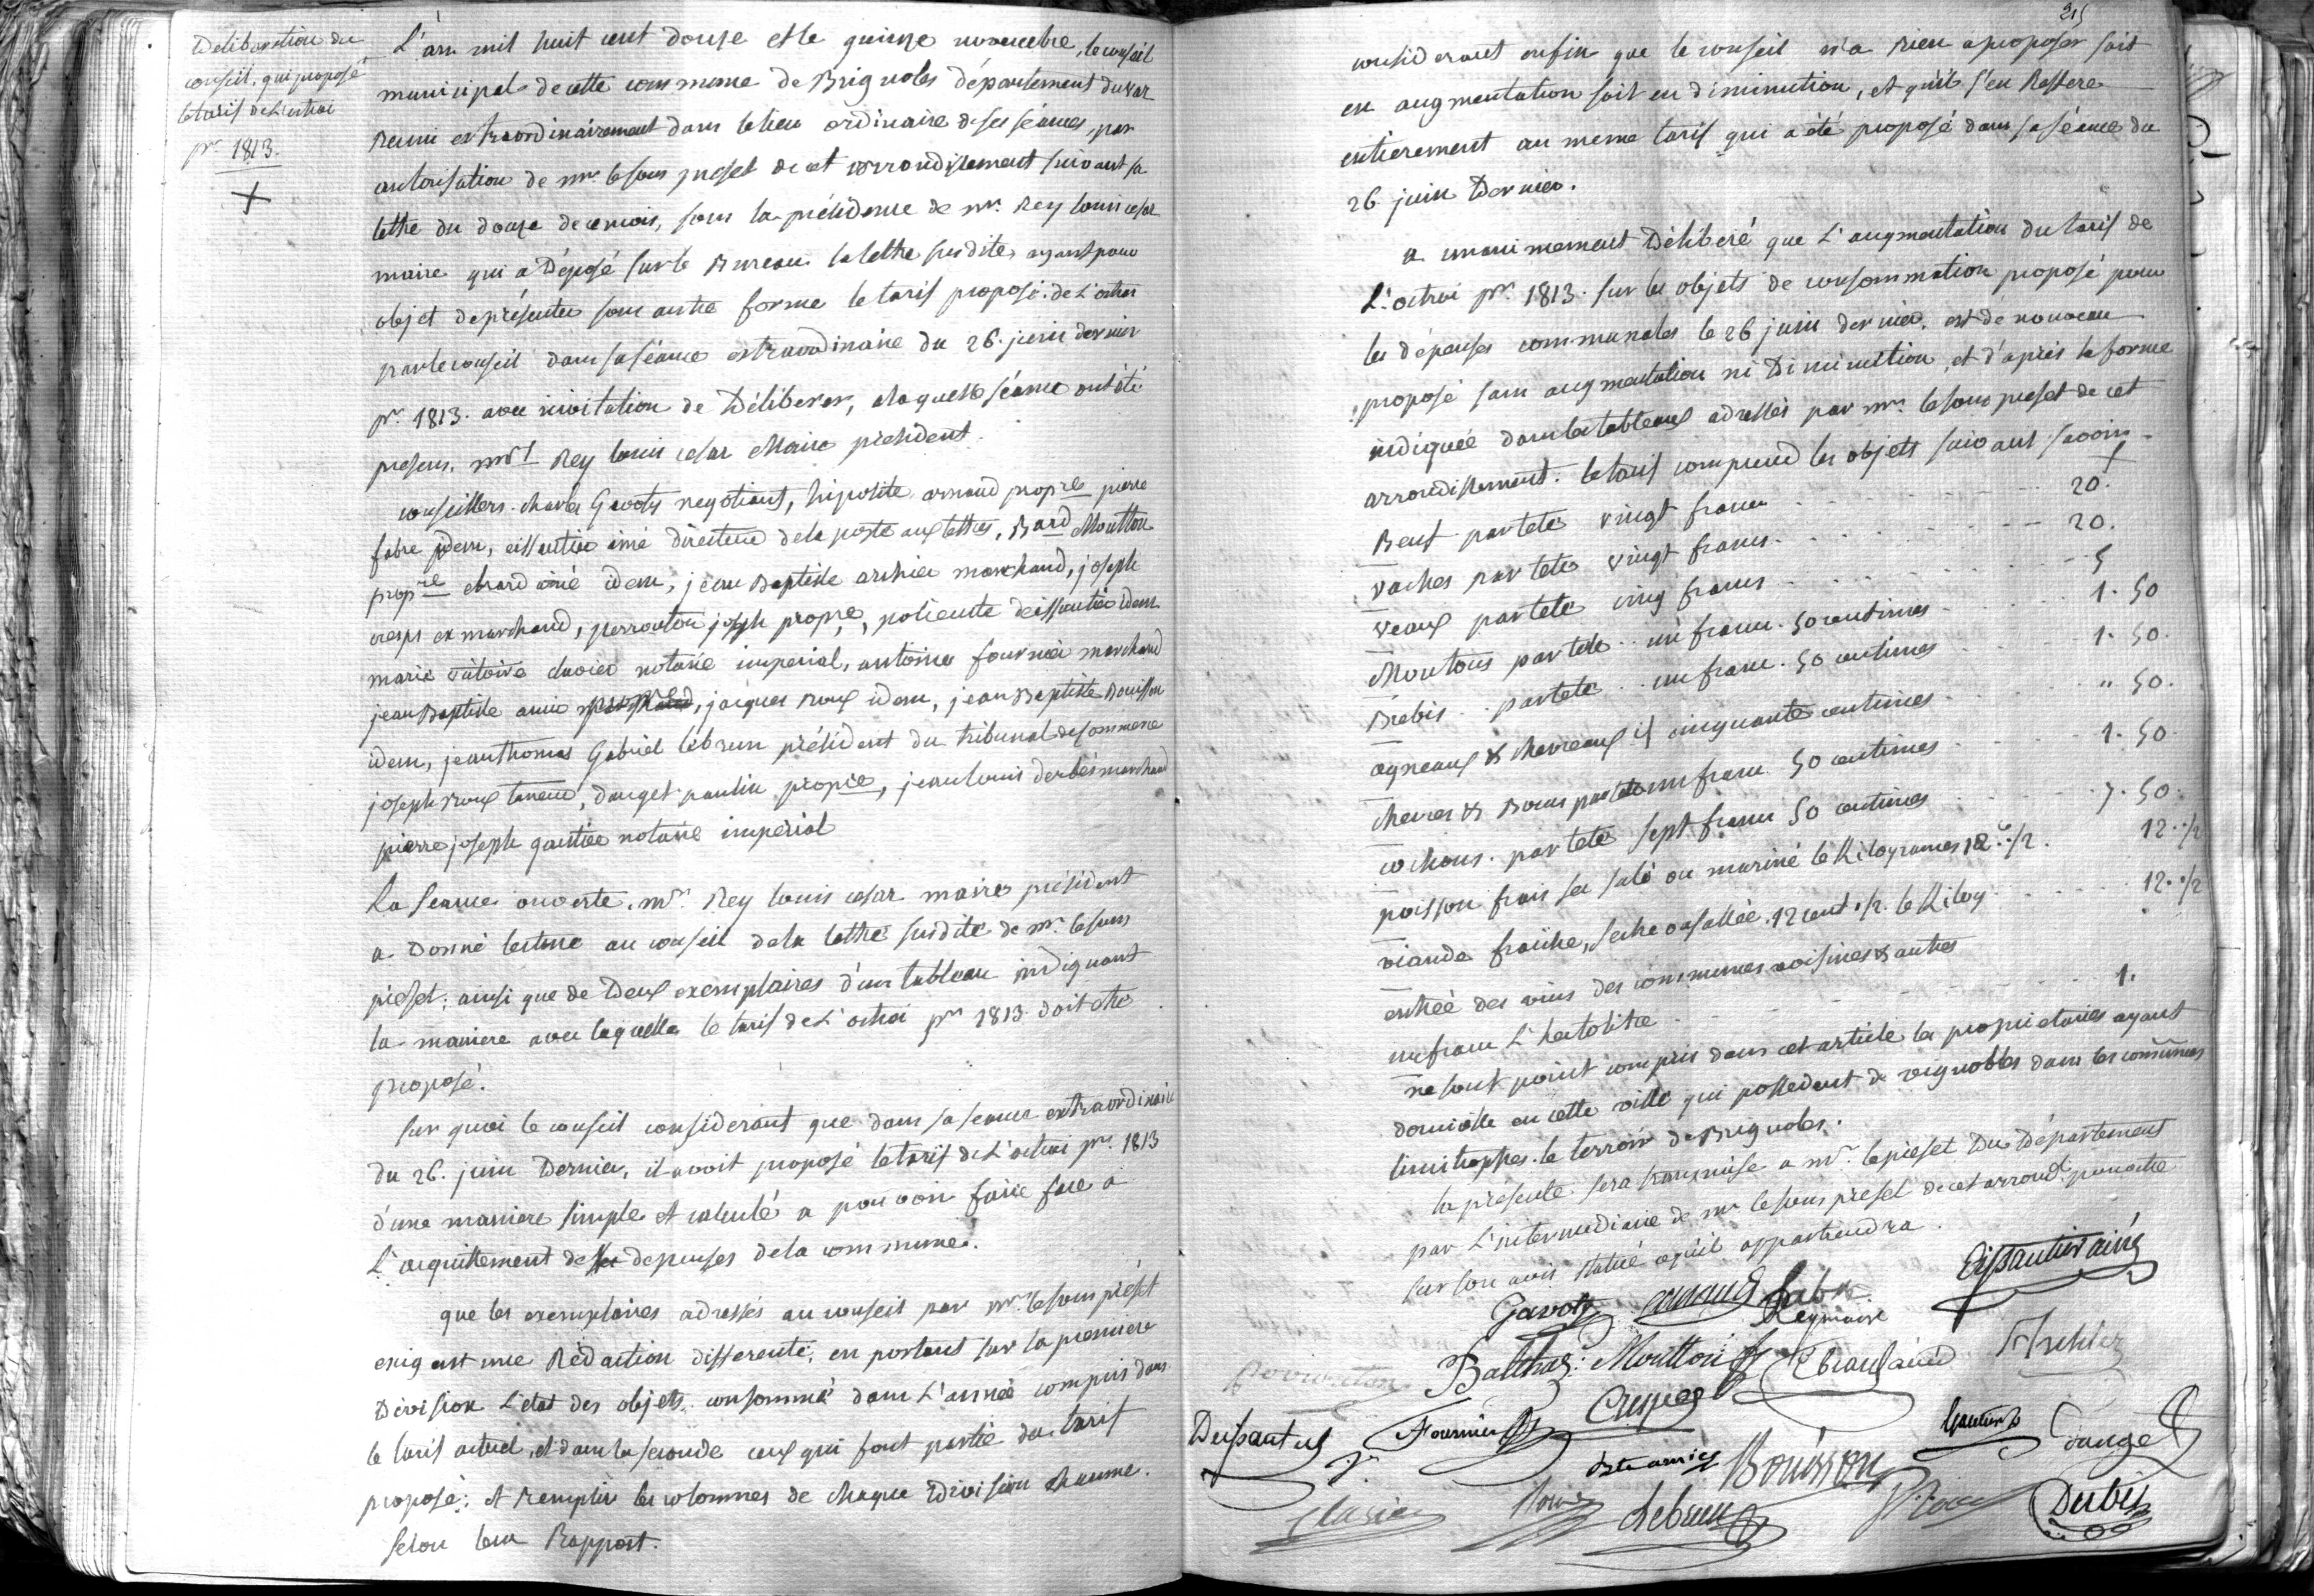 Deliberation du
conseil, qui propose
le tarif de L'octroi
pr. 1813.
L'an mil huit cent douze et le quinze novembre, le conseil
municipal de cette commune de Brignoles département du var
Reuni extraordinairement dans le lieu ordinaire de ses séances, par
autorisation de mr. le sous prefet de cet arrondissement suivant sa
lettre du douze de ce mois, sous la présidence de mr. Rey louis cesar
maire qui a Déposé sur le Bureau la lettre susdite, ayant pour
objet de présenter sous autre forme le tarif proposé de L'octroi
par le conseil dans sa séance extraordinaire du 26. juin dernier
pr. 1813. avec invitation de Déliberer, a laquelle séance ont été
presens. mrs Rey louis cesar Maire président.
conseillers. charles Gavoty negotiant, hiposite arnaud propre pierre
fabre idem, eissautier ainé directeur de la poste aux lettres, Bard Moutton
propre ebrard ainé idem, jean Baptiste archier marchand, joseph
crespi ex marchand, perrouton joseph propre, deissautier idem
marie clavier notaire imperial, antoine fournier marchand
jean Baptiste amic, jacques Roux idem, jean Baptiste Bouisson
idem, jean thomas Gabriel lebrun président du tribunal de commerce
joseph Roux taneur, dauget paulin propre, jean louis derbés marchand
pierre joseph gautier notaire impérial
La Seance ouverte, mr. Rey louis cesar maire président
a Donné lecture au conseil de la lettre susdite de mr. le sous
préfet; ainsi que de Deux exemplaires d'un tableau indiquant
la maniere avec laquelle le tarif de L'octroi pr 1813. doit etre
proposé.
sur quoi le conseil considerant que dans sa seance extraordinaire
du 26. juin Dernier, il avoit proposé le tarif de L'octroi pr. 1813
d'une maniere simple et calculé a pouvoir faire face a
L'acquittement des depenses de la commune.
que les exemplaires adressés au conseil par mr. le sous préfet
exigent une Rédaction differente, en portant sur la premiere
Division L'état des objets consommés dans L'année compris dans
le tarif actuel, et dans la seconde ceux qui font partie du tarif
proposé; et Remplir les colonnes de chaque Division chacune
selon leur Rapport.
215
considerant enfin que le conseil n'a Rien a proposer soit
en augmentation soit en diminution, et qu'il s'en Reffere
entierement au meme tarif qui a été proposé dans sa séance du
26 juin Dernier.
a unanimement Déliberé que L'augmentation du tarif de
L'octroi pr. 1813. sur les objets de consommation proposé pour
les dépenses communales le 26 juin dernier, est de nouveau
proposé sans augmentation ni Diminution, et d'après la forme
indiquée dans les tableaux adressés par mr. le sous prefet de cet
arrondissement. le tarif comprend les objets suivant savoir.
Beuf par tete vingt francs 20.f
Vaches par tete vingt francs. 20.
Veaux par tete cinq francs 5
Moutons par tete un franc. 50 centimes 1. 50
Brebis par tete un franc. 50 centimes 1. 50.
agneaux & chevreaux id cinquante centimes " 50.
chevres & Boucs par tete un franc 50 centimes 1. 50.
cochons. par tete sept francs 50 centimes 7. 50.
poisson frais sec salé ou mariné le Kilogrames 12 c. 1/2. 12. 1/2
viande fraiche, seche ou sallée. 12 cent. 1/2. le Kilog. 12. 1/2
entrée des vins des communes voisines & autres
un franc L'hectolitre 1.
ne sont point compris dans cet article les propriétaires ayant
domicille en cette ville qui possedent de vignobles dans les communes
limitrophes le terroir de Brignoles.
la présente sera transmise a mr. le préfet Du Département
par L'intermediaire de mr le sous prefet de cet arrondt. pour etre
sur son avis statué aqu'il appartiendra.
Gavoty arnaud fabre Eissautier ainé
Rey maire
Perrouton Balthaz: Moutton Ebrard ainé Archier
Crespi
Deissautier Fournier Bte amic Bouisson Gautier Dauget
Clavier Roux Lebrun Roux Derbés